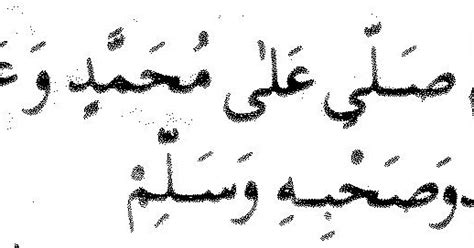 صَلِّي عَلٰى مُحَمَّدٍ وَعَ
وَصَحْبِهِ وَسَلِّمْ